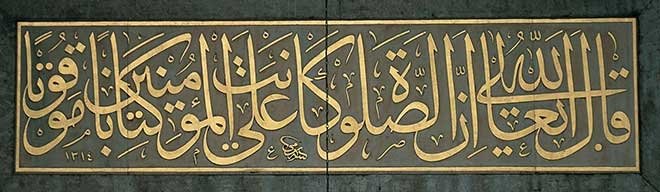 قال الله تعالى إن الصلوة كانت على المؤمنين كتابا موقوتا
١٣١٤